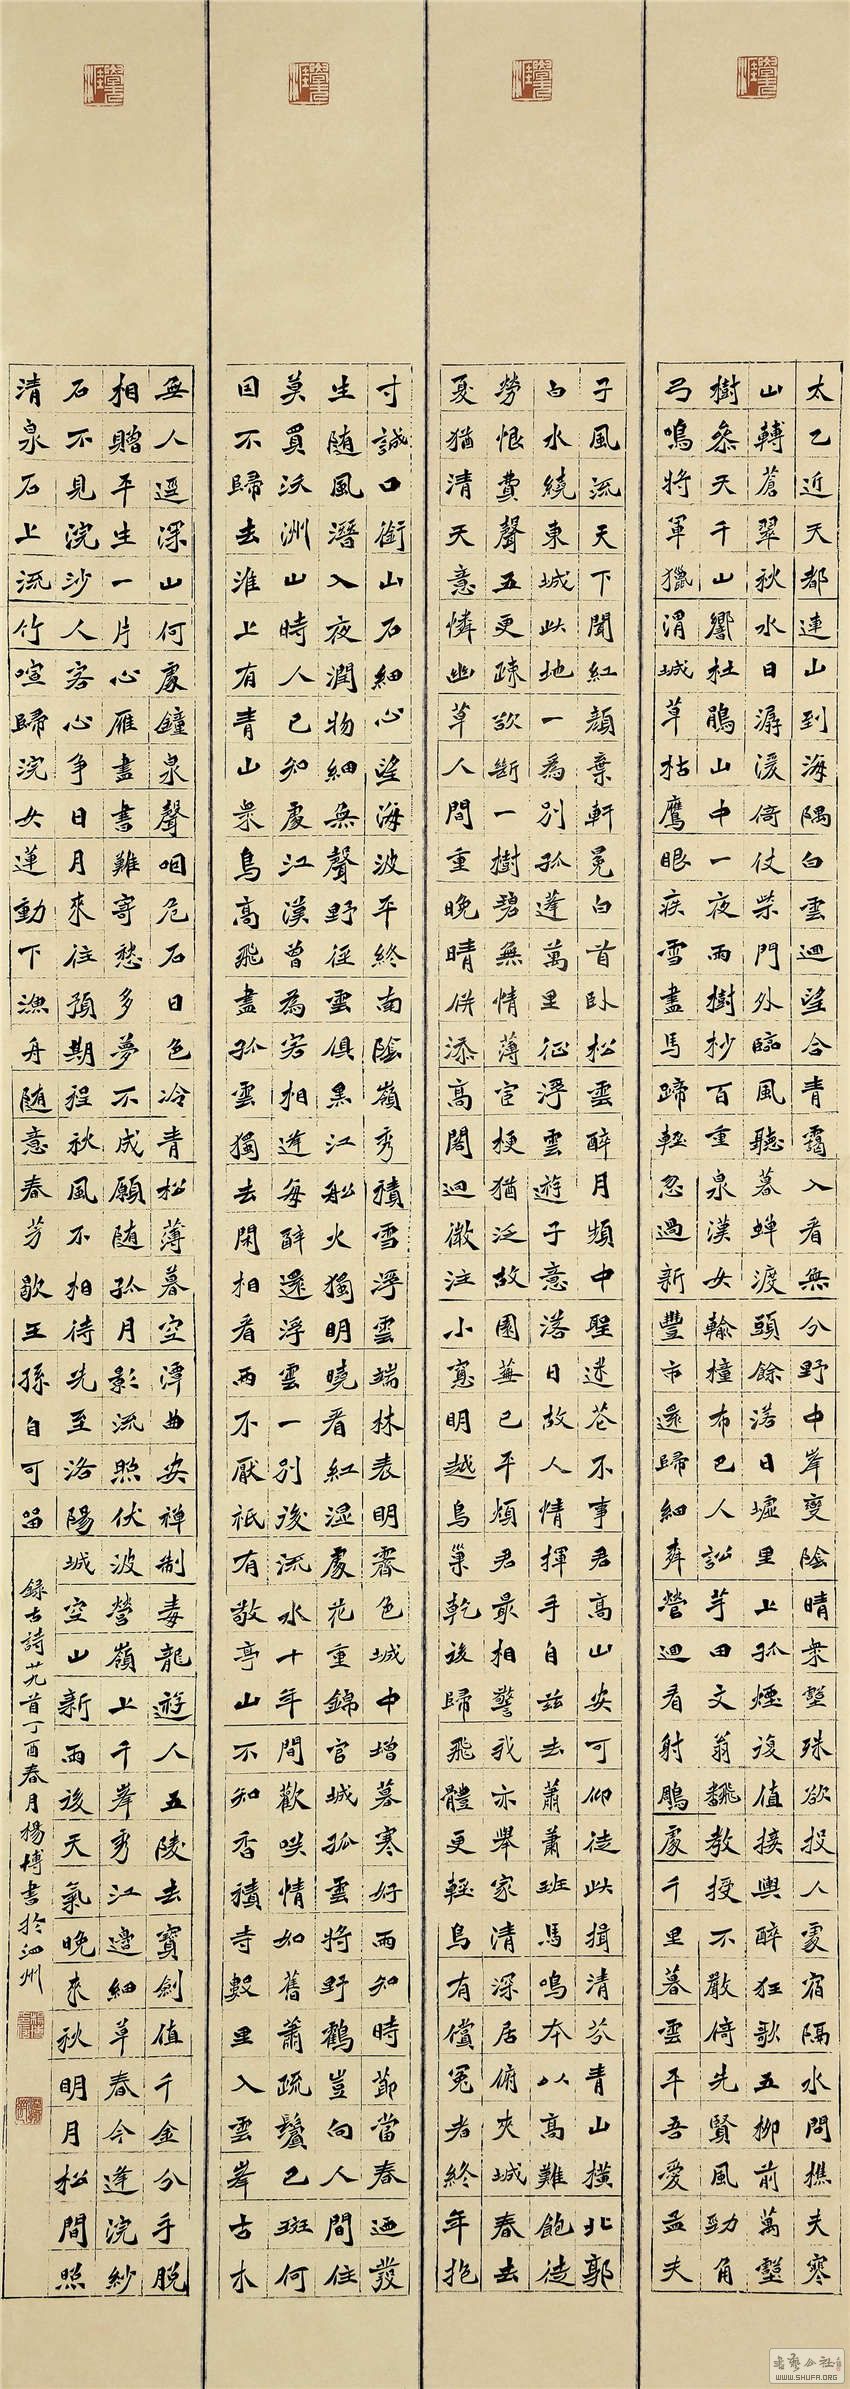 太乙近天都連山到海隅白雲迴望合青靄入看無分野中峯變陰晴衆壑殊欲投人處宿隔水問樵夫寒
山轉蒼翠秋水日潺湲倚仗柴門外臨風聽暮蟬渡頭餘落日墟里上孤煙復值接輿醉狂歌五柳前萬壑
樹參天千山響杜鵑山中一夜雨樹杪百重泉漢女輸橦布巴人訟芋田文翁翻教授不敢倚先賢風勁角
弓鳴將軍獵渭城草枯鷹眼疾雪盡馬蹄輕忽過新豐市還歸細柳營迴看射鵰處千里暮雲平吾愛孟夫
子風流天下聞紅顏棄軒冕白首臥松雲醉月頻中聖迷花不事君高山安可仰徒此揖清芬青山橫北郭
白水繞東城此地一為別孤蓬萬里征浮雲遊子意落日故人情揮手自茲去蕭蕭班馬鳴本以高難飽徒
勞恨費聲五更疎欲斷一樹碧無情薄宦梗猶泛故園蕪已平煩君最相警我亦舉家清深居俯夾城春去
夏猶清天意憐幽草人間重晚晴併添高閣迥微注小窻明越鳥巢乾後歸飛體更輕鳥有償冤者終年抱
寸誠口銜山石細心望海波平終南陰嶺秀積雪浮雲端林表明霽色城中增暮寒好雨知時節當春迺發
生随風潛入夜潤物細無聲野徑雲俱黑江船火獨明曉看紅濕處花重錦官城孤雲將野鶴豈向人間住
莫買沃洲山時人已知處江漢曾為客相逢每醉還浮雲一別後流水十年間歡咲情如舊蕭疏鬢已斑何
因不歸去淮上有青山衆鳥高飛盡孤雲獨去閑相看兩不厭祇有敬亭山不知香積寺數里入雲峯古木
無人逕深山何處鐘泉聲咽危石日色冷青松薄暮空潭曲安禪制毒龍遊人五陵去寶劍值千金分手脫
相贈平生一片心雁盡書難寄愁多夢不成願随孤月影流照伏波營嶺上千峯秀江邊細草春今逢浣紗
石不見浣沙人客心爭日月來往預期程秋風不相待先至洛陽城空山新雨後天氣晚來秋明月松間照
清泉石上流竹喧歸浣女蓮動下漁舟随意春芳歇王孫自可留
録古詩廿九首丁酉春月楊博書於泗州
WWW.SHUFA.ORG